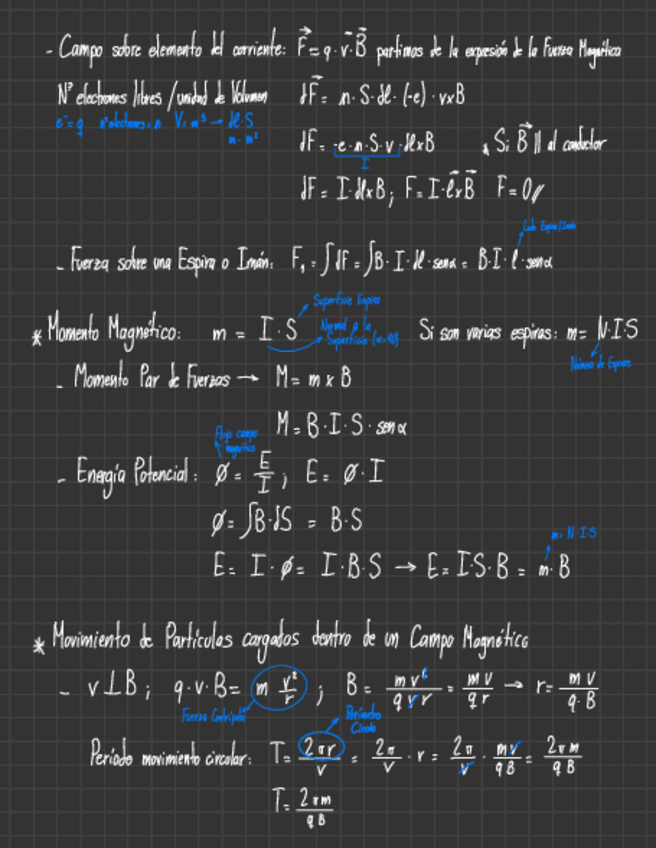 - Campo sobre elemento del corriente: F⃗ = q · v⃗ · B⃗ partimos de la expresión de la Fuerza Magnética
Nº electrones libres / unidad de Volumen dF⃗ = n · S · dl · (-e) · v x B
e⁻ = q nº electrones = n V = m³ → dl · S
m · m²
dF = -e · n · S · v · dl x B * Si B⃗ || al conductor
I
dF = I · dl x B ; F = I · l⃗ x B⃗ F = 0 //
Lado Espira/Imán
- Fuerza sobre una Espira o Imán: F₁ = ∫dF = ∫B · I · dl · senα = B · I · l · senα
Superficie Espira
* Momento Magnético: m = I · S Si son varias espiras: m = N · I · S
Normal a la
Superficie
Número de Espiras
- Momento Par de Fuerzas → M = m x B
M = B · I · S · senα
Flujo campo
magnético
- Energía Potencial: ø = E/I ; E = ø · I
ø = ∫B · dS = B · S
m = N · I · S
E = I · ø = I · B · S → E = I · S · B = m · B
* Movimiento de Partículas cargadas dentro de un Campo Magnético
- v ⊥ B ; q · v · B = m v²/r ; B = m v²/q v r = m v/q r → r = m v/q · B
Fuerza Centrípeta
Perímetro
Círculo
Período movimiento circular: T = 2πr/v = 2π/v · r = 2π/v · mv/qB = 2πm/qB
T = 2πm/qB